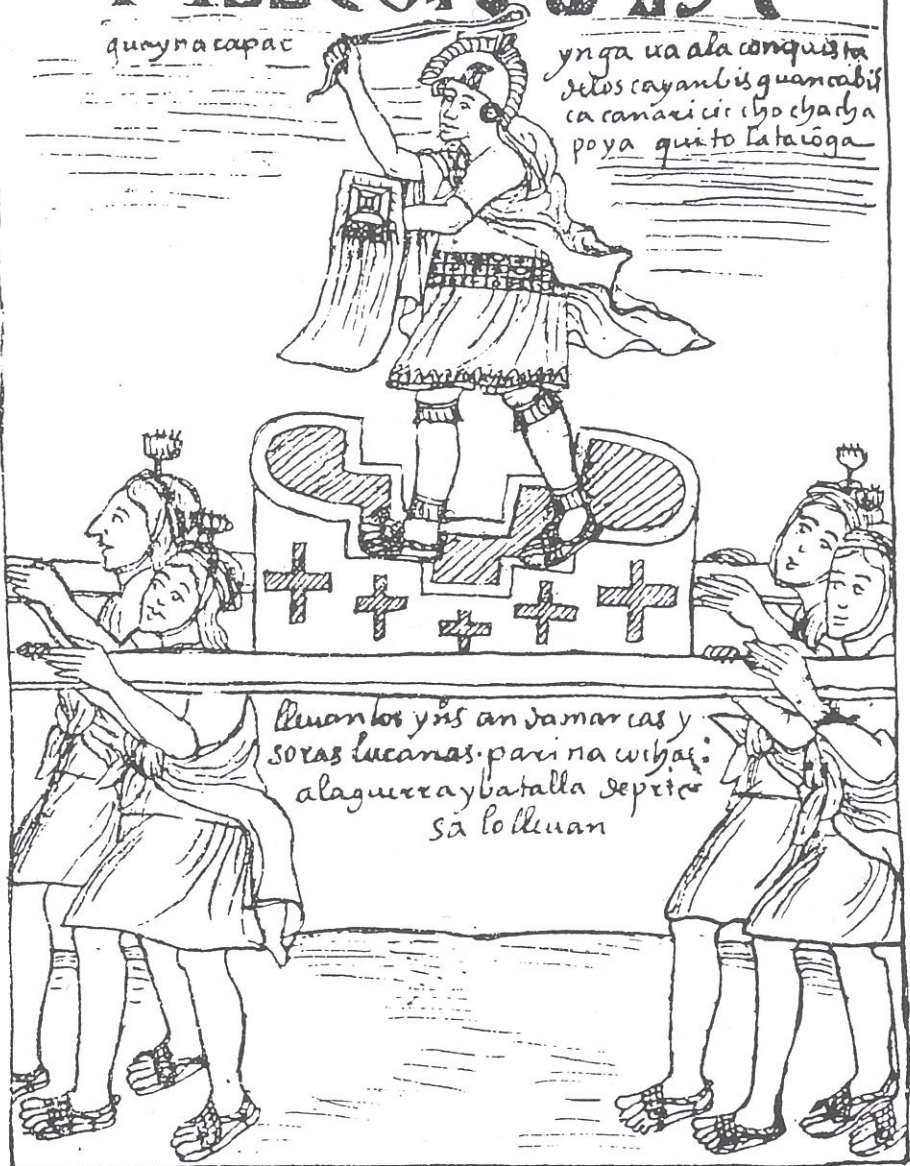 guaynacapac
ynga ua ala conquista
delos cayanbis guancabil
ca canari cic cho chacha
poya quito lataconga
lleuan los yns andamarcas y
soras lucanas. parinacochas.
ala guerra y batalla de prie
sa lo lleuan